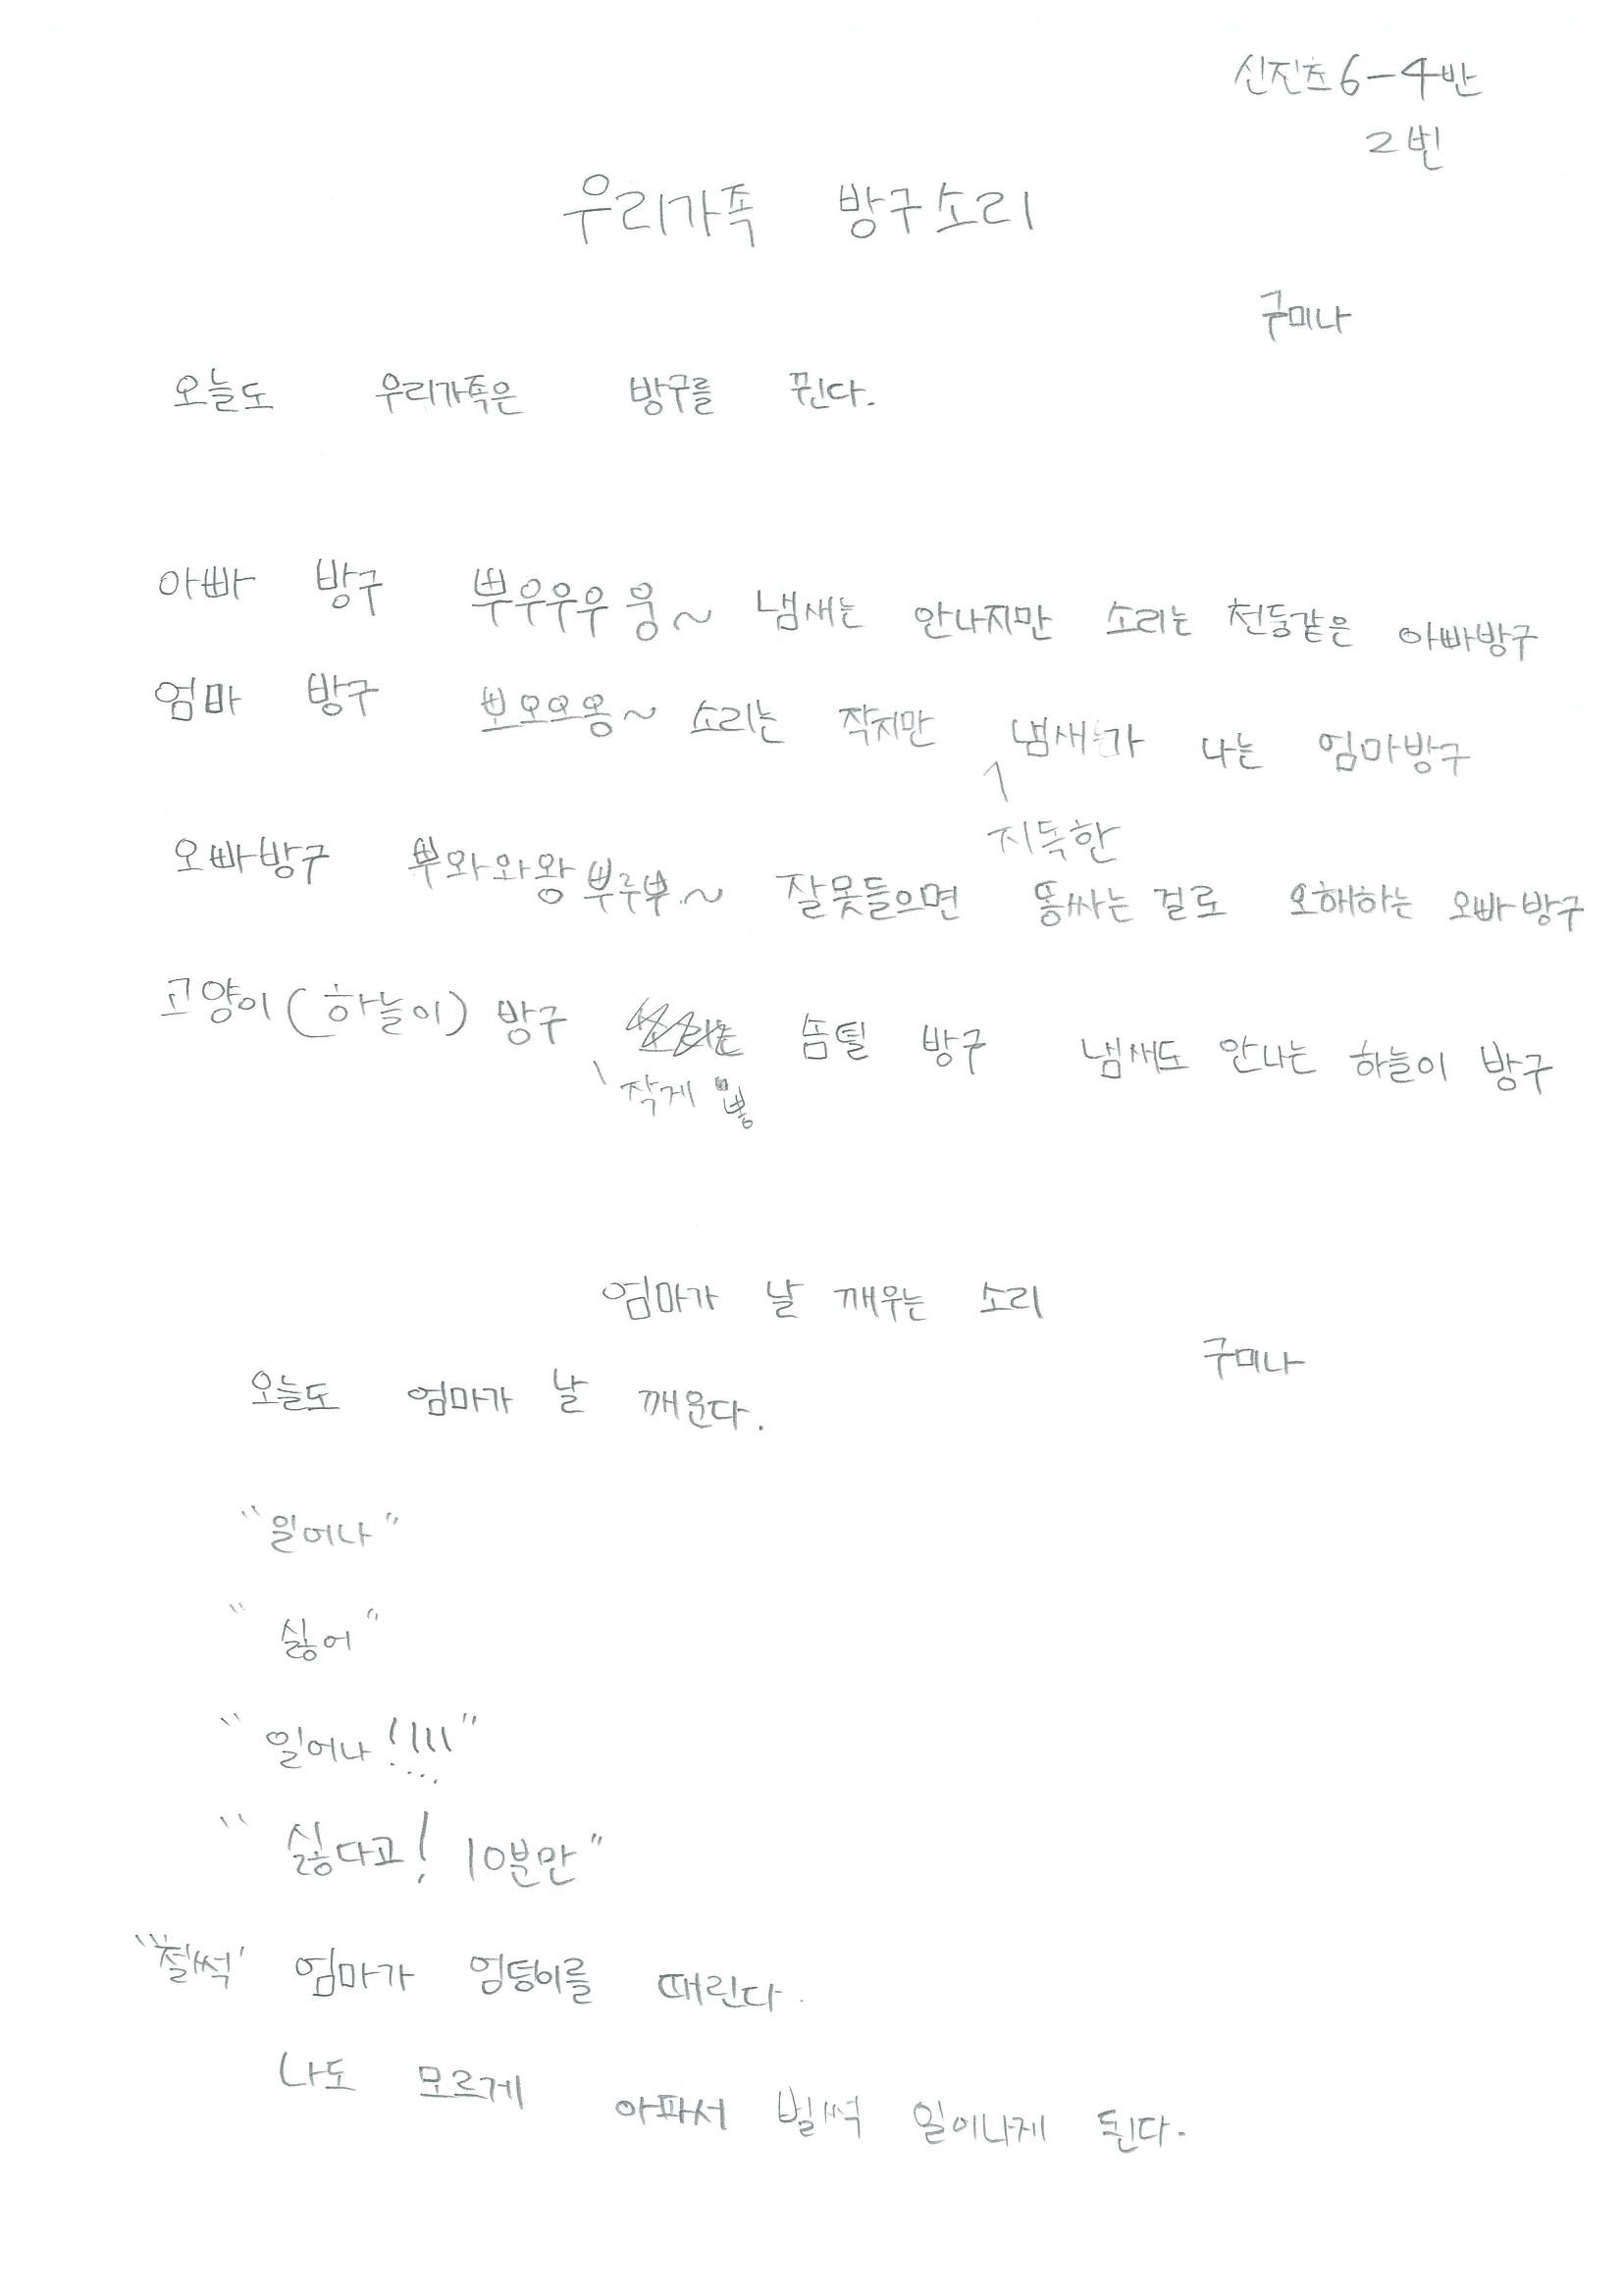 신진초 6-4반
2번
우리가족 방구소리
구미나
오늘도 우리가족은 방구를 뀐다.
아빠 방구 뿌우우우웅~ 냄새는 안나지만 소리는 천둥같은 아빠방구
엄마 방구 뽀오오옹~ 소리는 작지만 냄새가 나는 엄마방구
지독한
오빠방구 뿌와와왕뿌루뿌~ 잘못들으면 똥싸는 걸로 오해하는 오빠방구
고양이(하늘이) 방구 솜털 방구 냄새도 안나는 하늘이 방구
작게 뽕
엄마가 날 깨우는 소리
구미나
오늘도 엄마가 날 깨운다.
"일어나"
"싫어"
"일어나!!!!"
"싫다고! 10분만"
"철썩' 엄마가 엉덩이를 때린다.
나도 모르게 아파서 벌썩 일어나게 된다.